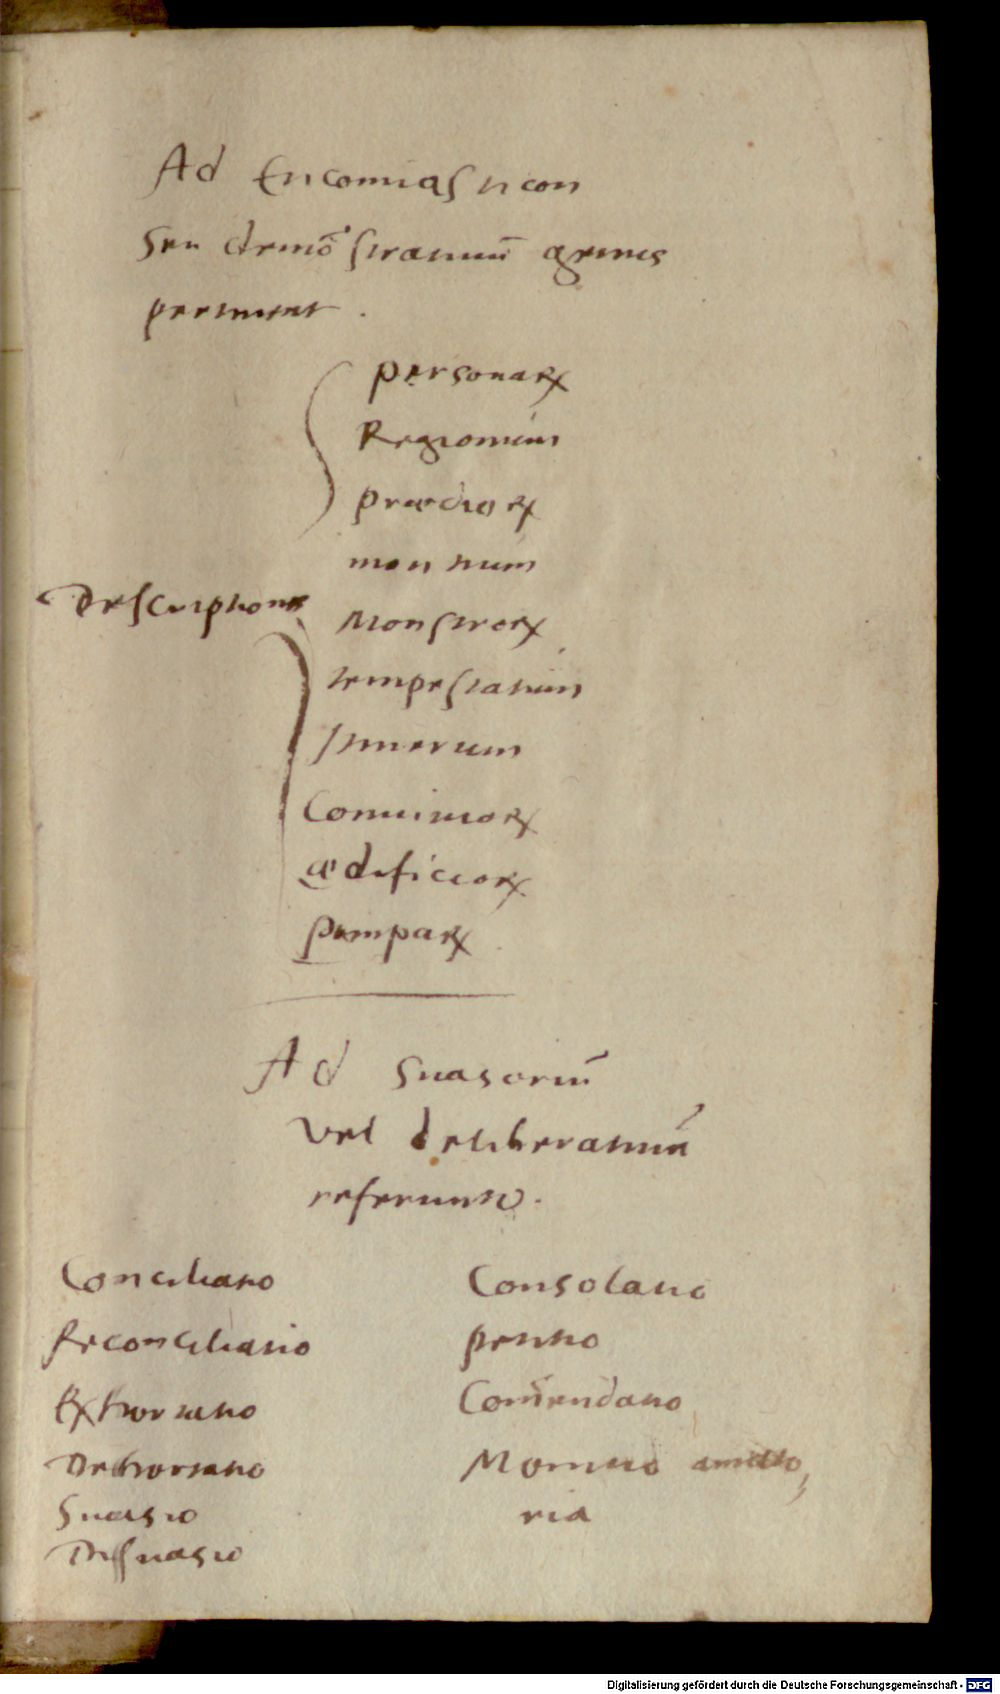 Ad Encomiasticon
seu demōstratiuū genus
pertinent.
personaꝝ
Regionum
prædioꝝ
montium
Descriptiones
Monstroꝝ
tempestatum
Itinerum
Conuiuioꝝ
ædificioꝝ
pompaꝝ
Ad Suasoriū
vel deliberatiuū
referunt᷑.
Conciliatio
Reconciliatio
Exhortatio
Dehortatio
Suasio
Dissuasio
Consolatio
petitio
Com̄endatio
Monitio amato,
ria
Digitalisierung gefördert durch die Deutsche Forschungsgemeinschaft - DFG